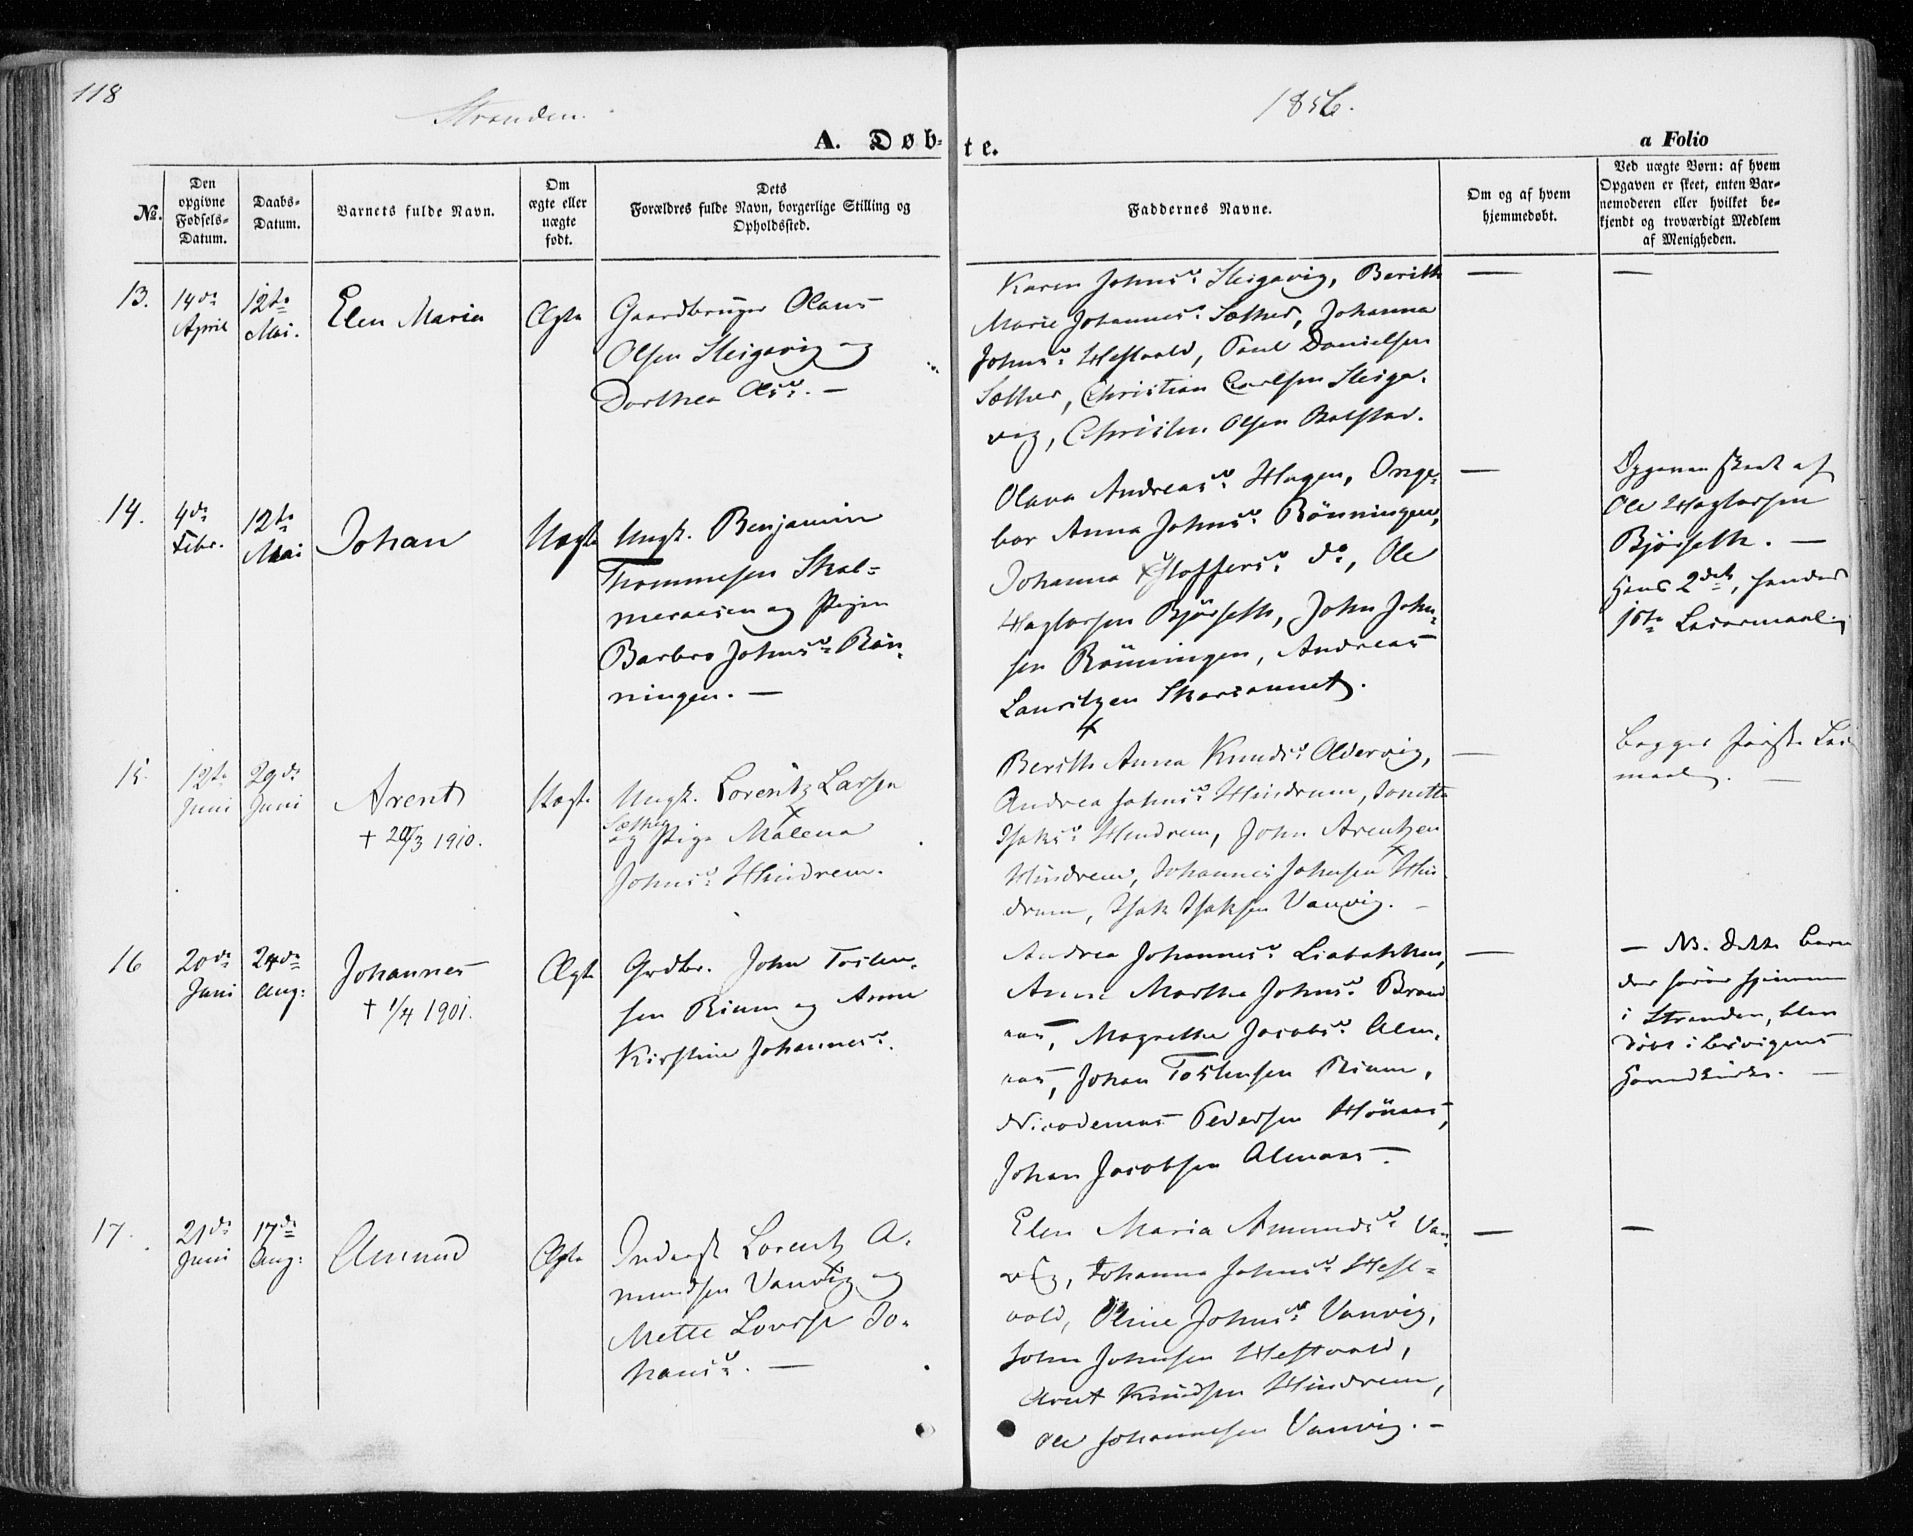 118
Stranden.
1856.
A. Døb-
te.
a Folio
№.
Den
opgivne
Fødsels-
Datum.
Daabs-
Datum.
Barnets fulde Navn.
Om
ægte eller
uægte
født.
Dets
Forældres fulde Navn, borgerlige Stilling og
Opholdssted.
Faddernes Navne.
Om og af hvem
hjemmedøbt.
Ved uægte Børn: af hvem
Opgaven er skeet, enten Bar-
nemoderen eller hvilket be-
kjendt og troværdigt Medlem
af Menigheden.
13.
14de
April
12te
Mai.
Elen Maria
Ægte
Gaardbruger Olaus
Olsen Sleigavig og
Dorthea Olsd. —
Karen Johnsd. Sleigavig, Berith
Marie Johannesd. Sæther, Johanna
Johnsd. Hestvold, Paul Danielsen
Sæther, Christian Carlsen Sleiga-
vig, Christen Olsen
—
—
14.
4de
Febr.
12te
Mai
Johan
Uægte
Ungk. Benjamin
Thommesen Skal-
meraasen og Pigen
Barbro Johnsd. Røn-
ningen. —
Olava Andreasd. Hagen, Inge-
bor Anna Johnsd. Rönningen,
Johanna do, Ole
Haglorsen Bjørseth, John John-
sen Rönningen, Andreas
Lauritzen
—
Opgaven skeet af
Ole Haglorsen
Bjørseth. —
Hans 2det, hendes
1ste Leiermaal.
15.
12te
Juni
29de
Juni
Arent
† 20/3 1910.
Uægte
Ungk. Lorentz Larsen
Sæther
og Pige Malena
Johnsd. Hindrem.
Berith Anna Knudsd. Oldervig,
Andrea Johnsd. Hindrem, Jonetta
Isaksd. Hindrem, John Arentzen
Hindrem, Johannes Johnsen Hin-
drem, Isak Isaksen Vanvig. —
—
Begges første Lei-
maal. —
16
20de
Juni
24de
Aug:
Johannes
† 1/4 1901.
Ægte
Grdbr. John Tosten-
sen Rium og Anne
Kirstine Johannesd.
Andrea Johannesd. Liabakken,
Anne Martha Johnsd. Brand-
aas, Magrethe Jacobsd. Alm-
aas, Johan Tostensen Rium,
Nicodemus Pedersen Hönaas,
Johan Jacobsen Almaas.
—
— NB. Dette Barn
der hører hjemme
i Stranden, blev
døbt i Lexvigens
Hovedkirke. —
17.
21de
Juni
17de
Aug:
Amund
Ægte
Inderst Lorentz A-
mundsen Vanvig og
Mette Lovise Jo-
hansd. —
Elen Maria Amundsd. Van-
vig, Johanna Johnsd. Hest-
vold, Oline Johnsd. Vanvig,
John Johnsen Hestvold,
Arent Knudsen Hindrem,
Ole Johannesen Vanvig. —
—
—